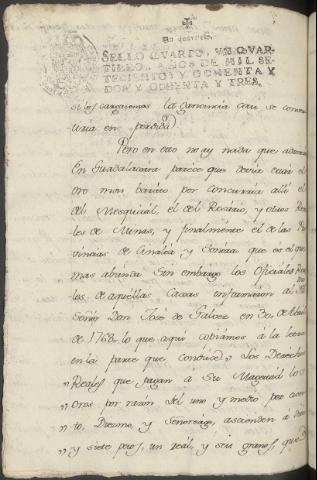 Un quartillo.
SELLO QVARTO, VN QVAR-
TILLO, AÑOS DE MIL SE-
TECIENTOS Y OCHENTA Y
DOS Y OCHENTA Y TRES.
si los cargaremos la ganancia que se conver
tiria en perdida.
Pero en esto no ay nada que
En Guadalaxara parece que devia estar el
oro mas barato por concurrir alli el
del Mesquital, el del Rosario, y otros Rea
les de Minas, y finalmente el de las Pro
vincias de Sinaloa y Sonora que es el que
mas abunda. Sin embargo los Oficiales Rea
les, de aquellas Caxas informaron al
Señor Don José de Galvez en 30 de Abril
de 1768 lo que aqui copiamos à la letra
en la parte que conduce. "Los Derechos
"Reales que pagan à Su Magestad los
"Oros por razon del uno y medio por cien
"to, Diezmo, y Señoreage, ascienden à
"y siete pesos, un real, y seis granos, que